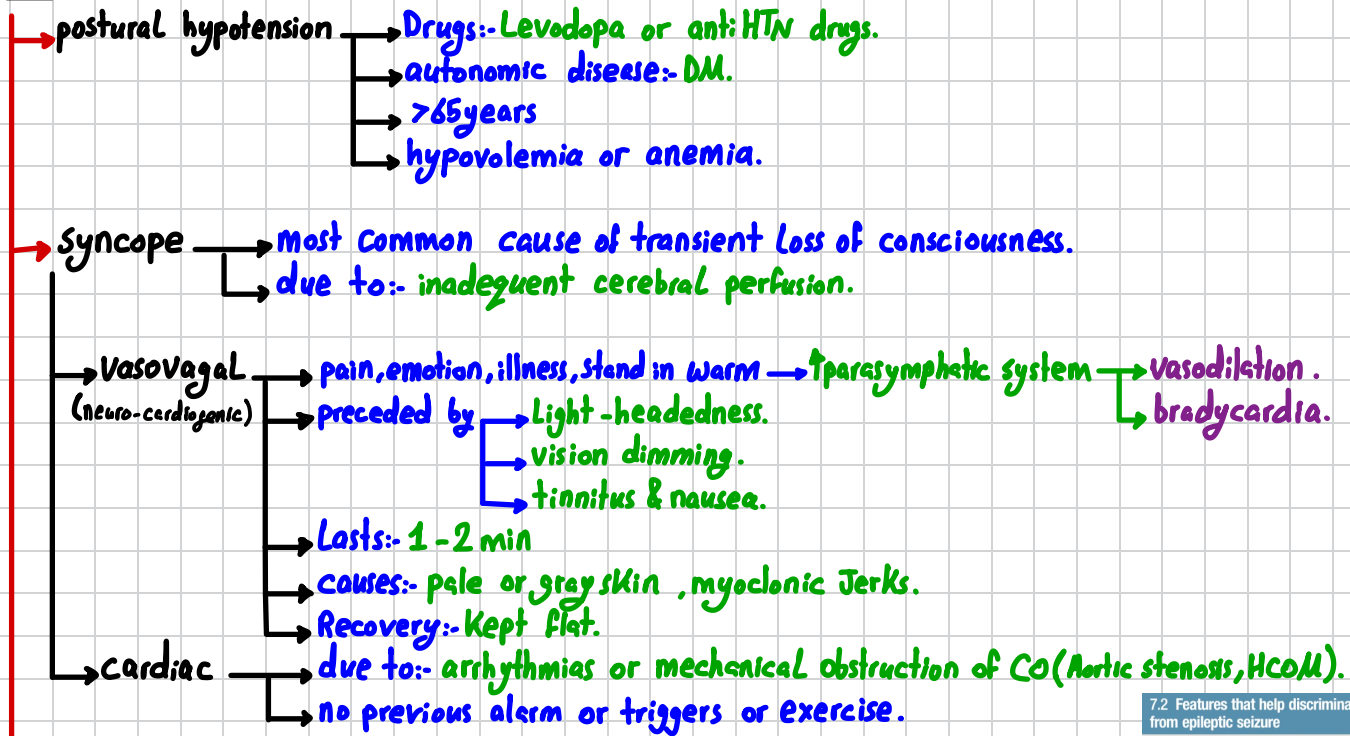 postural hypotension Drugs:- Levodopa or anti HTN drugs.
autonomic disease:- DM.
>65years
hypovolemia or anemia.
syncope most common cause of transient Loss of consciousness.
due to:- inadequent cerebral perfusion.
vasovagal pain, emotion, illness, stand in warm ↑parasymphatic system vasodilation.
(neuro-cardiogenic) preceded by Light-headedness. bradycardia.
vision dimming.
tinnitus & nausea.
Lasts:- 1-2 min
causes:- pale or gray skin, myoclonic Jerks.
Recovery:- Kept flat.
cardiac due to:- arrhythmias or mechanical obstruction of CO (Aortic stenosis, HCOM).
no previous alarm or triggers or exercise.
7.2 Features that help discrimina
from epileptic seizure